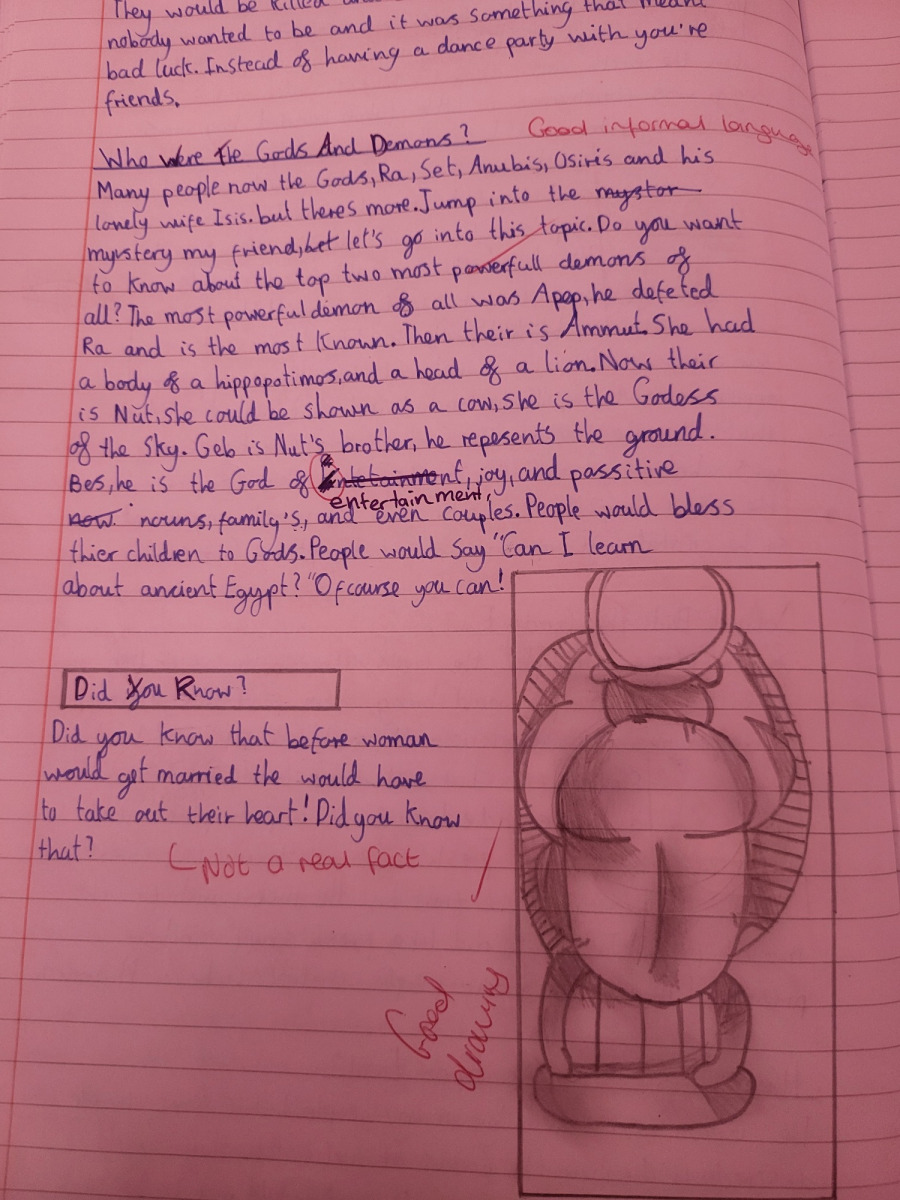 They would be killed
nobody wanted to be and it was something that meant
bad luck. Instead of having a dance party with you're
friends.
Who were the Gods And Demons?
Good informal language
Many people now the Gods, Ra, Set, Anubis, Osiris and his
lonely wife Isis. but theres more. Jump into the mystor
myrstery my friend, let let's go into this topic. Do you want
to know about the top two most powerfull demons of
all? The most powerful demon of all was Apop, he defeted
Ra and is the most Known. Then their is Ammut. She had
a body of a hippopotimos, and a head of a lion. Now their
is Nut, she could be shown as a cow, she is the Godess
of the Sky. Geb is Nut's brother, he repesents the ground.
Bes, he is the God of entetainment, joy, and passitive
entertainment,
now. nouns, family's, and even couples. People would bless
thier children to Gods. People would say "Can I learn
about ancient Egypt?" Ofcourse you can!
Did You Know?
Did you know that before woman
would get married the would have
to take out their heart! Did you know
that?
Not a real fact
Good
drawing